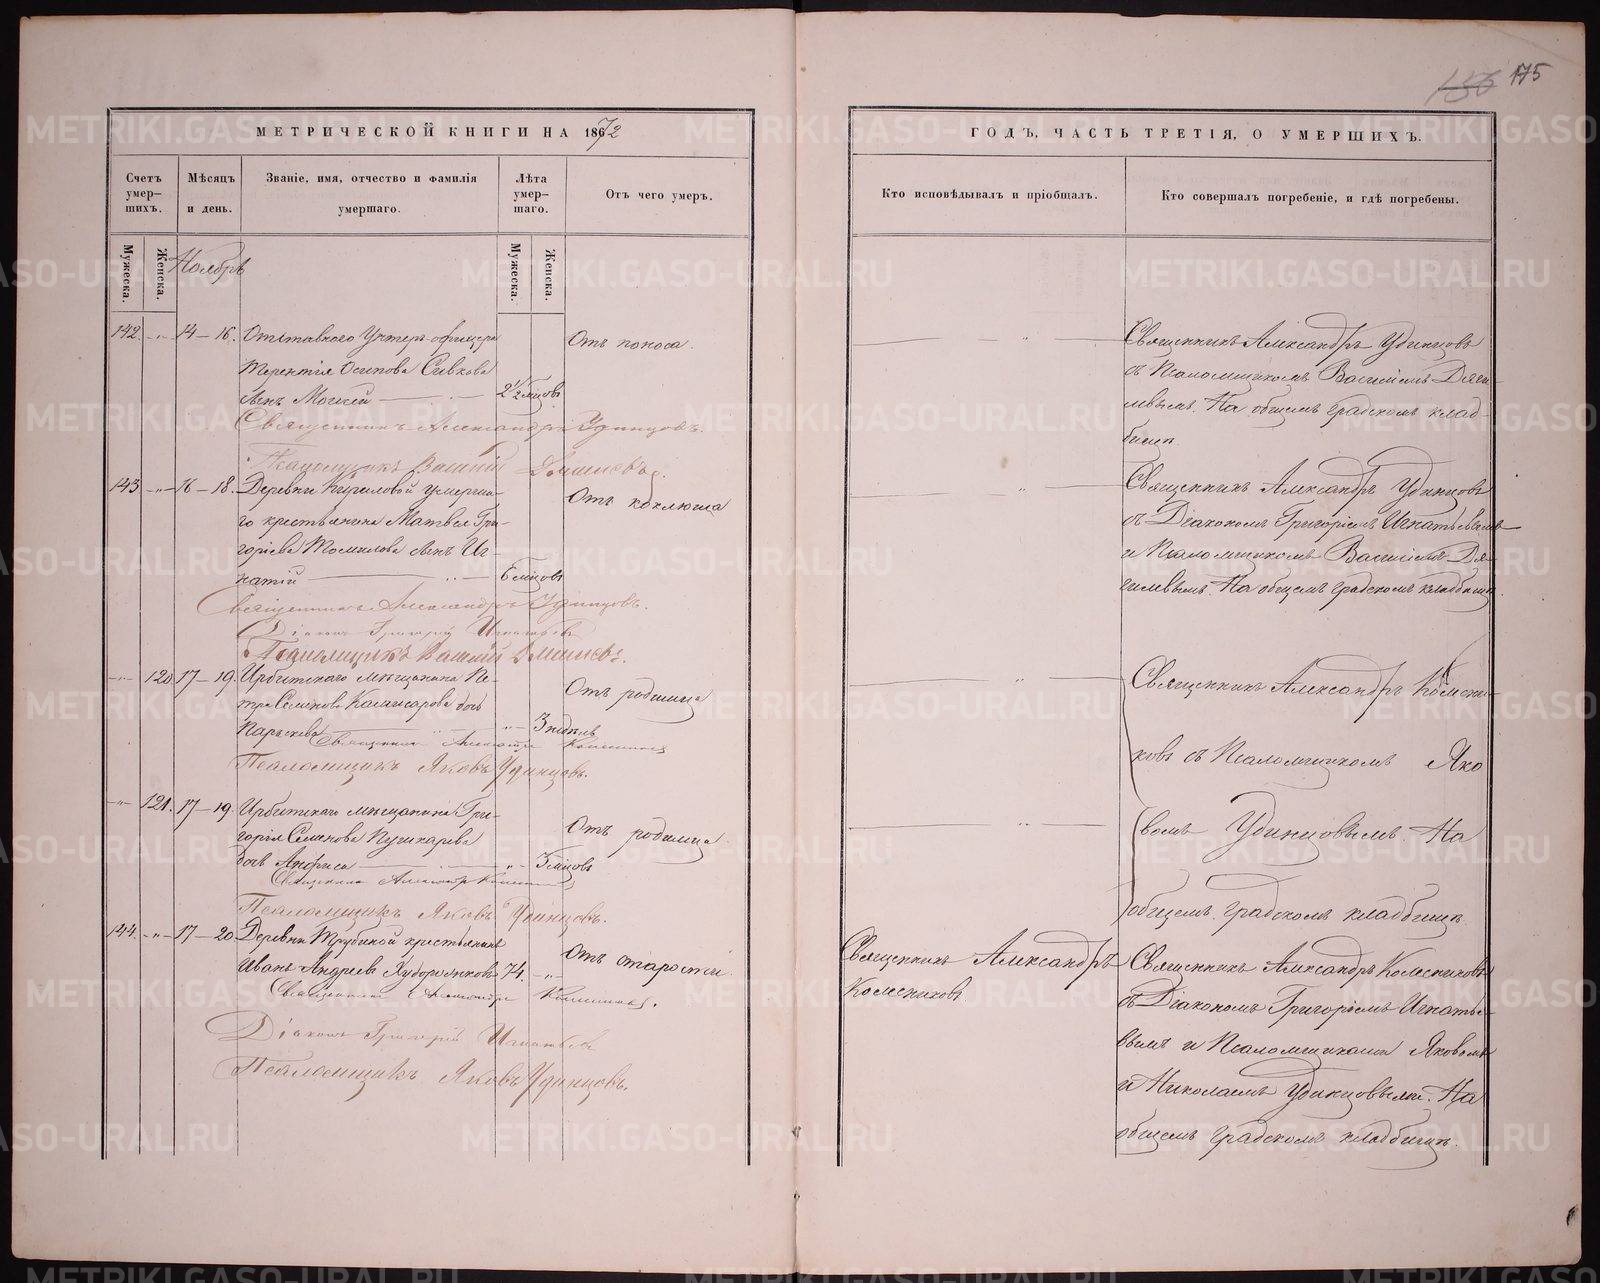 175
МЕТРИЧЕСКОЙ КНИГИ НА 1872
ГОДЪ, ЧАСТЬ ТРЕТІЯ, О УМЕРШИХЪ.
Счетъ умер-
шихъ.
Мѣсяцъ
и день.
Званіе, имя, отчество и фамилія
умершаго.
Лѣта
умер-
шаго.
Отъ чего умеръ.
Кто исповѣдывалъ и пріобщалъ.
Кто совершалъ погребеніе, и гдѣ погребены.
Мужеска.
Женска.
Мужеска.
Женска.
Ноябрь
142. 14–16. Отставного Унтеръ-офицера
Терентія Осипова Сивкова
сынъ Моисей 2½ мѣсцовъ
Отъ поноса.
Священникъ Александръ Удинцовъ
съ Псаломщикомъ Василіемъ Дяги-
левымъ. На общемъ градскомъ клад-
бищѣ.
Священникъ Александръ Удинцовъ.
Псаломщикъ Василій
143. 16–18. Деревни Кириловой умерша-
го крестьянина Матвея Гри-
горіева Томилова сынъ Иг-
натій 6 мѣсцовъ
Отъ коклюша
Священникъ Александръ Удинцовъ
съ Діакономъ Григоріемъ Игнатьевымъ
и Псаломщикомъ Василіемъ Дя-
гилевымъ. На общемъ градскомъ кладбищѣ.
Священникъ Александръ Удинцовъ.
Діаконъ Григорій Игнатьевъ
Псаломщикъ Василій
120. 17–19. Ирбитскаго мѣщанина Пе-
тра Семенова дочь
Параскева 3 недѣль
Отъ родимца
Священникъ Александръ Колесни-
ковъ съ Псаломщикомъ Яко
Священникъ Александръ Колесниковъ
Псаломщикъ Яковъ Удинцовъ.
121. 17–19. Ирбитскаго мѣщанина Гри-
горія Семенова Пушкарева
дочь Анфиса мѣсцовъ
Отъ родимца
вомъ Удинцовымъ. На
общемъ градскомъ кладбищѣ.
Священникъ Александръ Колесниковъ
Псаломщикъ Яковъ Удинцовъ.
144. 17–20. Деревни Трубиной крестьянинъ
Иванъ Андреевъ Худорожковъ 74.
Отъ старости
Священникъ Александръ
Колесниковъ
Священникъ Александръ Колесниковъ
съ Діакономъ Григоріемъ Игнатье-
вымъ и Псаломщиками Яковомъ
и Николаемъ Удинцовыми. На
общемъ градскомъ кладбищѣ.
Священникъ Александръ Колесниковъ.
Діаконъ Григорій Игнатьевъ
Псаломщикъ Яковъ Удинцовъ.
METRIKI.GASO-URAL.RU